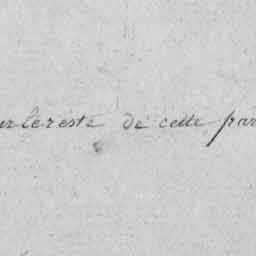 ur le reste de cette par